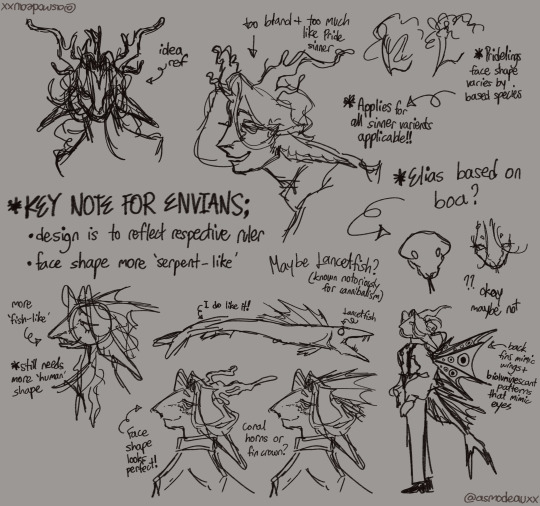 @asmodeauxx
idea
ref
too bland + too much
like Pride
sinner
*Pridelings
face shape
varies by
based species
*Applies for
all sinner varients
applicable!!
*KEY NOTE FOR ENVIANS;
• design is to reflect respective ruler
• face shape more 'serpent-like'
*Elias based on
boa?
?? okay
maybe not
Maybe Lancetfish?
(known notoriously
for cannibalism)
more
'fish-like'
*still needs
more 'human'
shape
I do like it!!
Lancetfish
Face
shape
looks
perfect!!
Coral
horns or
fin crown?
*back
fins mimic
wings +
bioluminescant
patterns
that mimic
eyes
@asmodeauxx